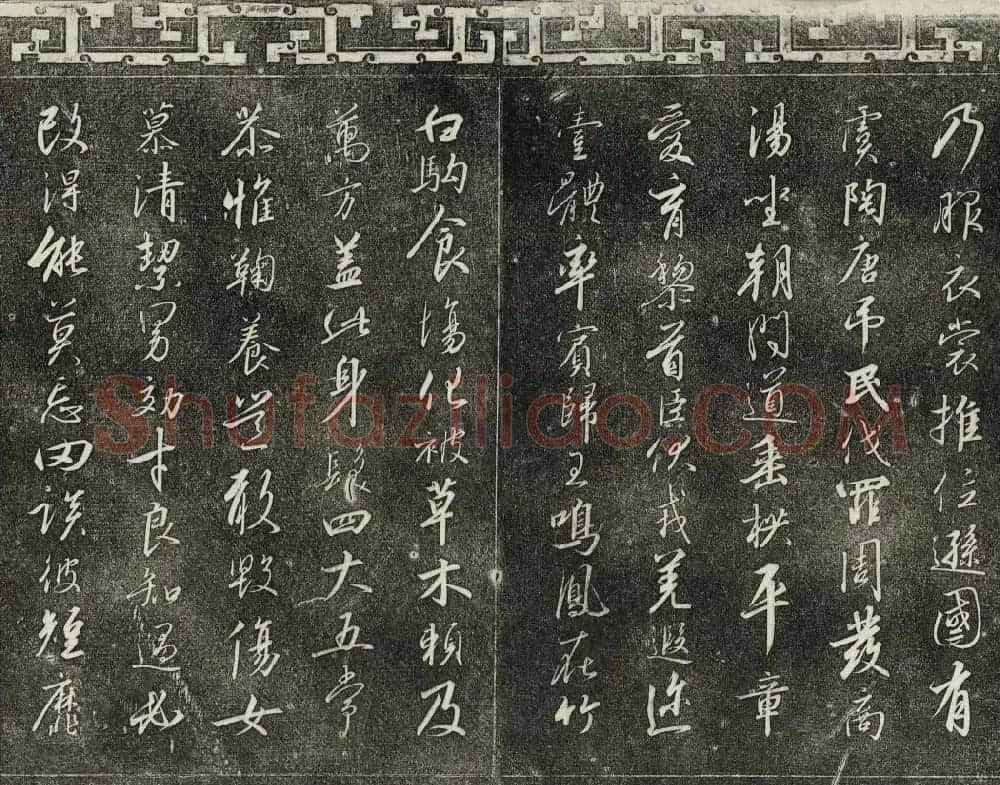 乃服衣裳推位遜國有
虞陶唐吊民伐罪周發商
湯坐朝問道垂拱平章
愛育黎首臣伏戎羌遐迩
壹體率賓歸王鳴鳳在竹
白駒食場化被草木賴及
萬方盖此身髮四大五常
恭惟鞠養豈敢毀傷女
慕清潔男効才良知過必
改得能莫忘罔談彼短靡
Shufaziliao.COM